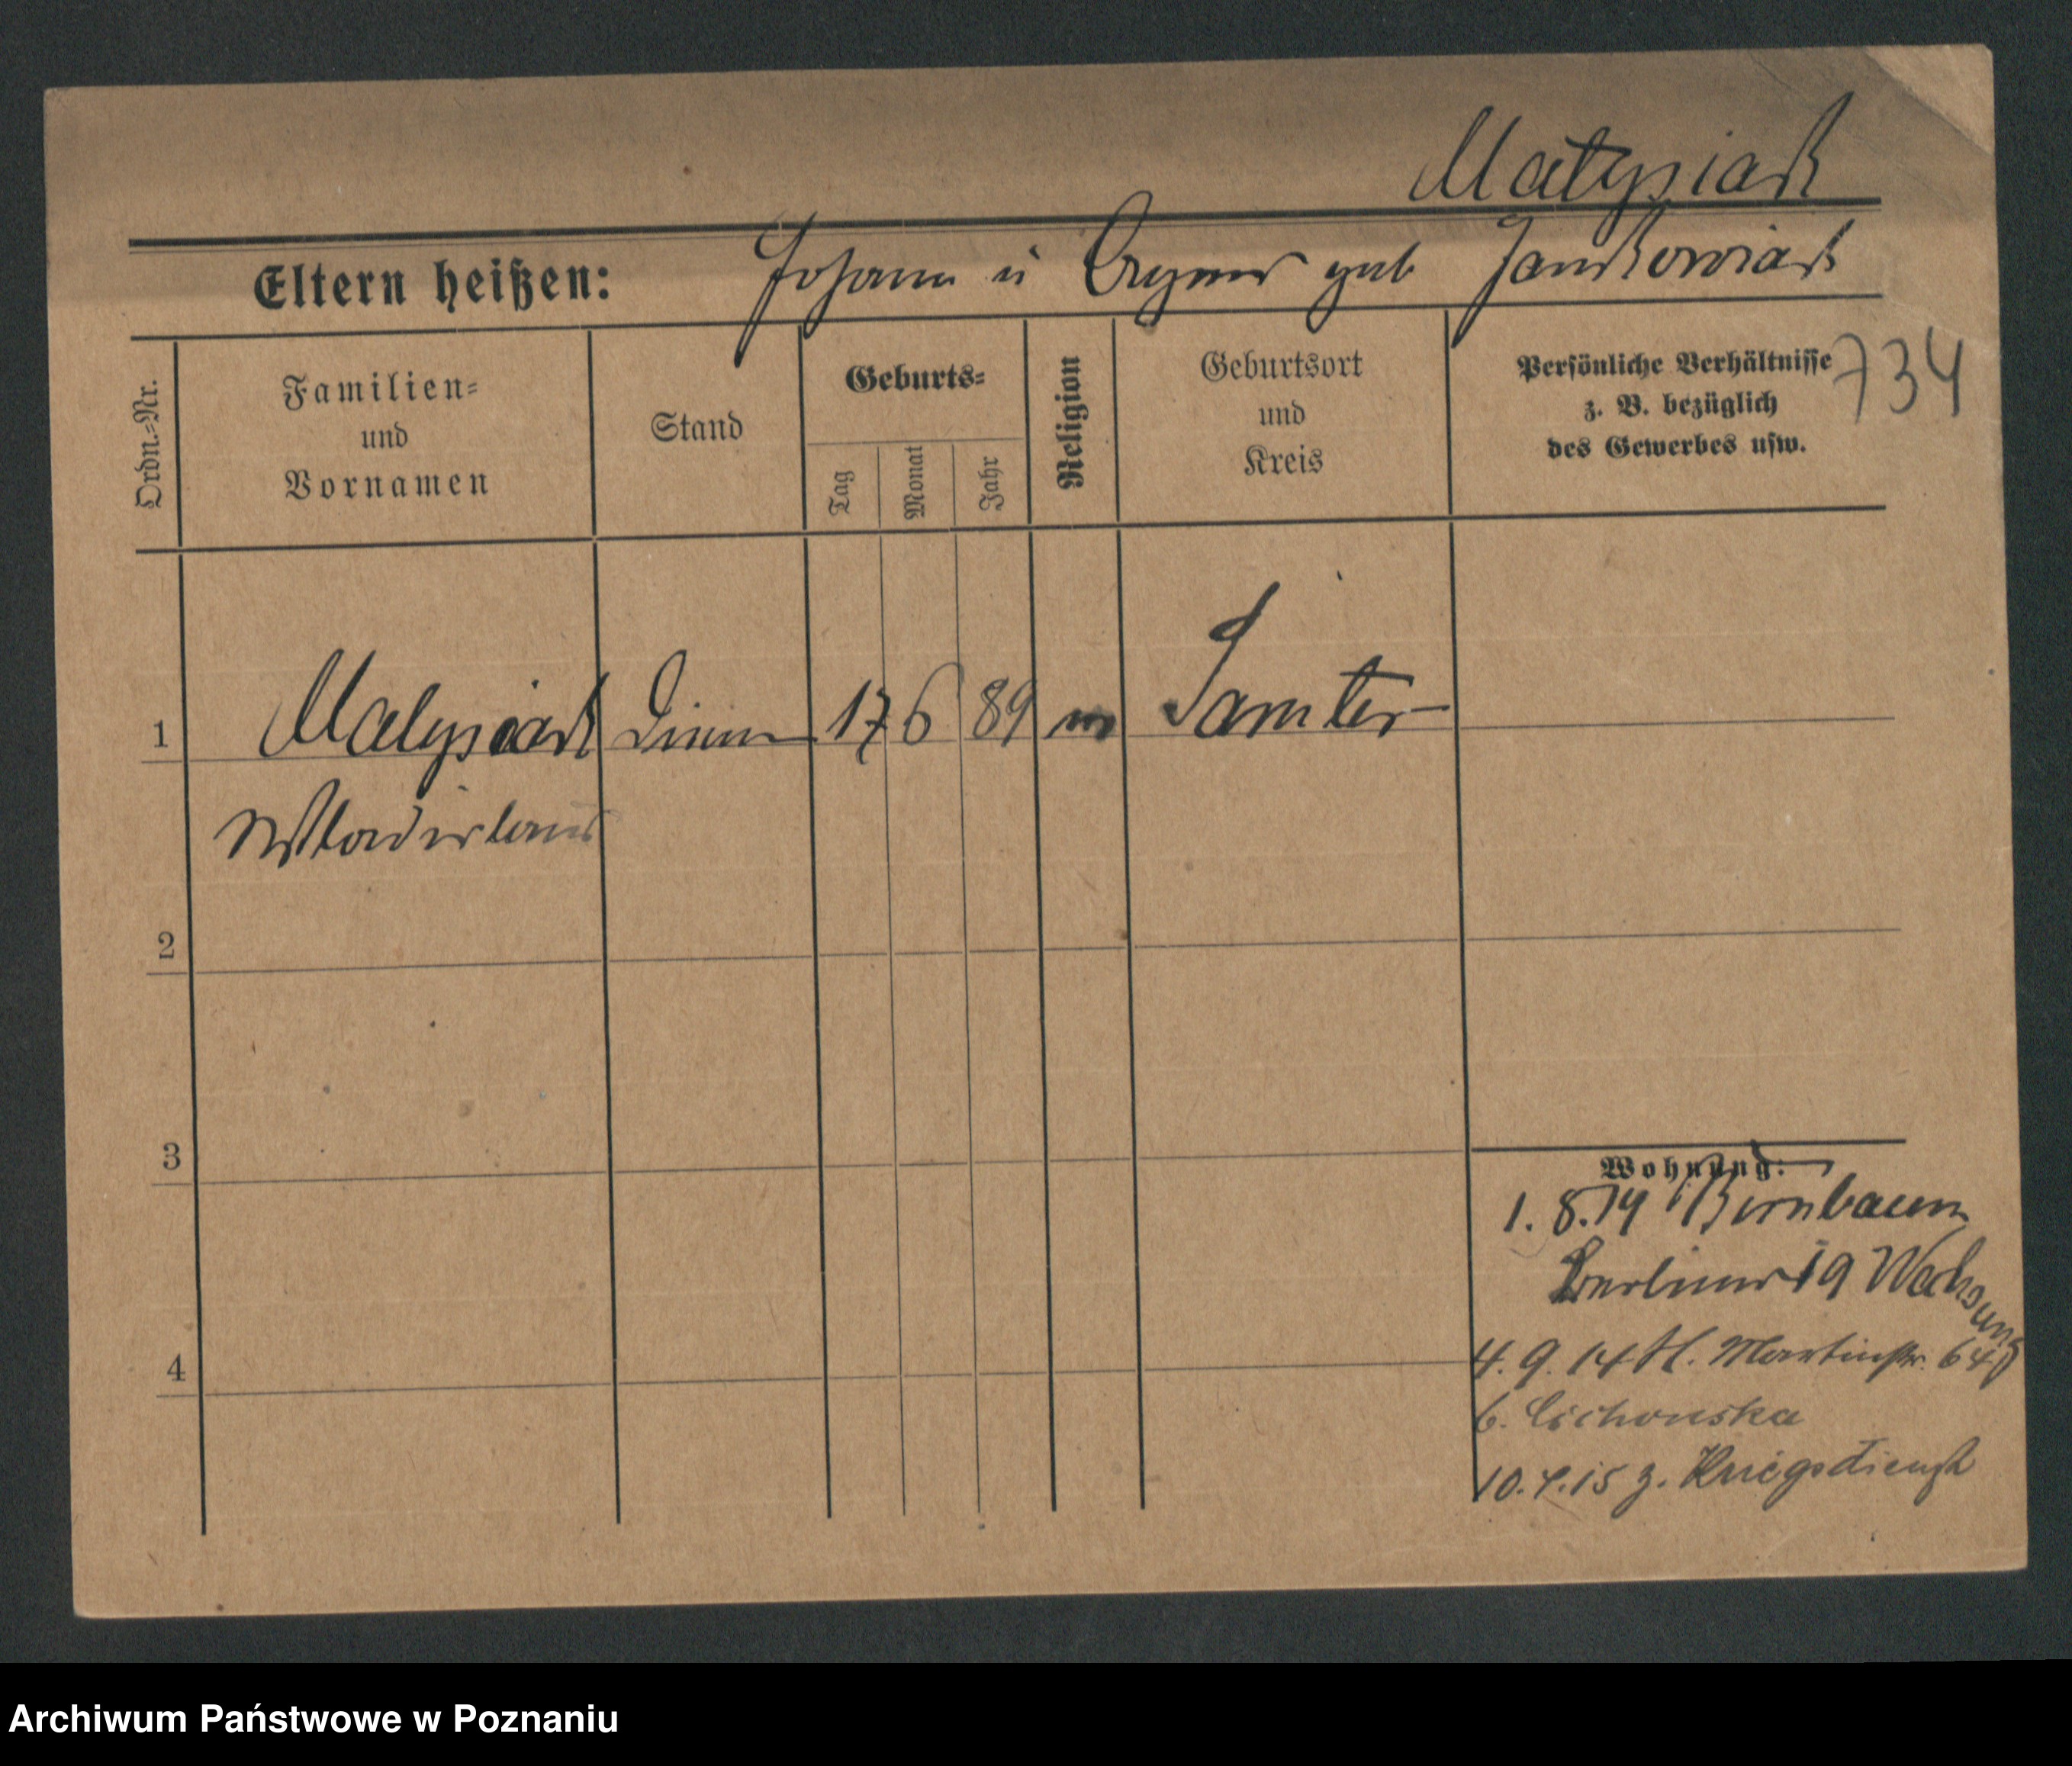 Matysiak
Eltern heißen: Johann u geb Jankowiak
734
Ordn.=Nr.
Familien=
und
Vornamen
Stand
Geburts=
Tag
Monat
Jahr
Religion
Geburtsort
und
Kreis
Persönliche Verhältnisse
z. B. bezüglich
des Gewerbes usw.
1 Matysiak 17 6 89 Samter
2
3
4
Wohnung:
1. 8. 14 Birnbaum
Berliner 19
4. 9. 14 St. Martinstr. 64
b. Cichonska
10.4.15 z. Kriegsdienst
Archiwum Państwowe w Poznaniu